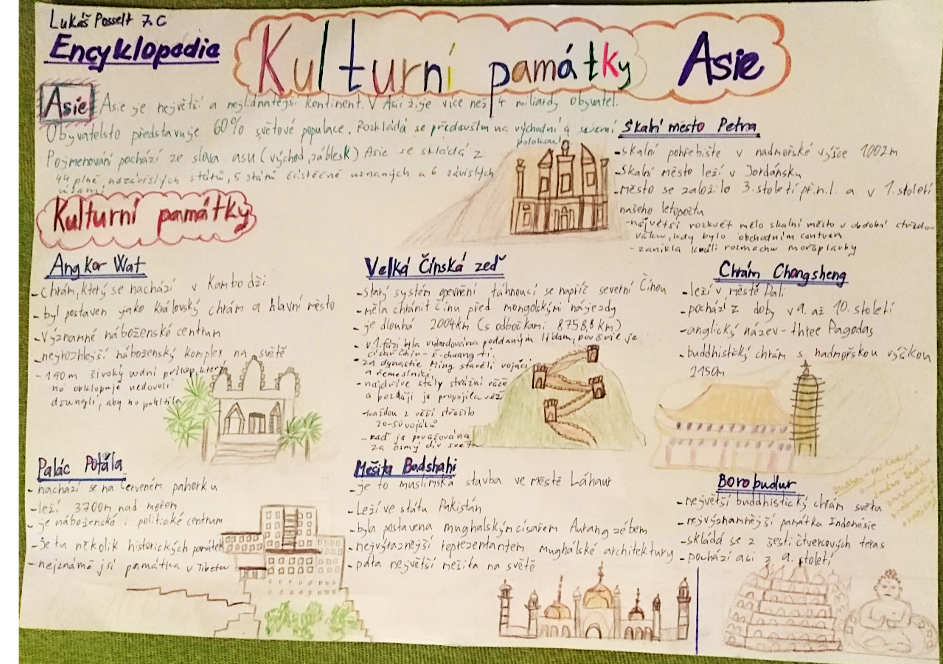 Lukáš Posselt 7.C
Encyklopedie
Kulturní památky Asie
Asie
Asie je největší a nejlidnatější kontinent. V Asii žije více než 4 miliardy obyvatel.
Obyvatelsto představuje 60% světové populace. Rozkládá se především na východní a severní
polokouli
Pojmenování pochází ze slova asu (východ, záblesk) Asie se skládá z
44 plně nezávislých států, 5 států částečně uznaných a 6 závislých
území
Skalní město Petra
-skalní pohřebiště v nadmořské výšce 1002m
-Skalní město leží v Jordánsku
-Město se založilo 3.století př.n.l. a v 1.století
našeho letopočtu
-největší rozkvět mělo skalní město v období středo-
věku, kdy bylo obchodním centrem
-zanikla kvůli rozmachu mořeplavby
Kulturní památky
Angkor Wat
-chrám, který se nachází v Kambodži
-byl postaven jako královský chrám a hlavní město
-Významné náboženské centrum
-nejrozhlejší náboženský komplex na světě
-190m široký vodní příkop, který
ho obklopuje nedovolil
džungli, aby ho pohltila
Velká Čínská zeď
-starý systém opevnění táhnoucí se napříč severní Čínou
-měla chránit Čínu před mongolskými nájezdy
-je dlouhá 2004km (s odbočkami 8758,8 km)
-v 1.fázi byla vybudována poddanými lidmi,
-za dynastie Ming stavěli vojáci
a řemeslníci
-nejdříve stály strážní věže
a později je propojila zeď
-každou z věží střežilo
20-50 vojáků
-zeď je považována
za osmý div světa
Chrám Chongsheng
-leží v městě Dali
-pochází z doby v 9. až 10. století
-anglický název-three Pagodas
-buddhistický chrám s nadmořskou výškou
2150m
Palác Potála
-nachází se na červeném pahorku
-leží 3700m nad mořem
-je náboženské i politické centrum
-Je tu několik historických památek
-nejznámější památka v Tibetu
Mešita Badshahi
-je to muslimská stavba ve městě Láhaur
-Leží ve státu Pakistán
-byla postavena mughalským císařem Aurangzébem
-nejvýraznější reprezentantem mughalské architektury
-pátá největší mešita na světě
Borobudur
-největší buddhistický chrám světa
-nejvýznamnější památka Indonésie
-skládá se z šesti čtvercových teras
-pochází asi z 9. století